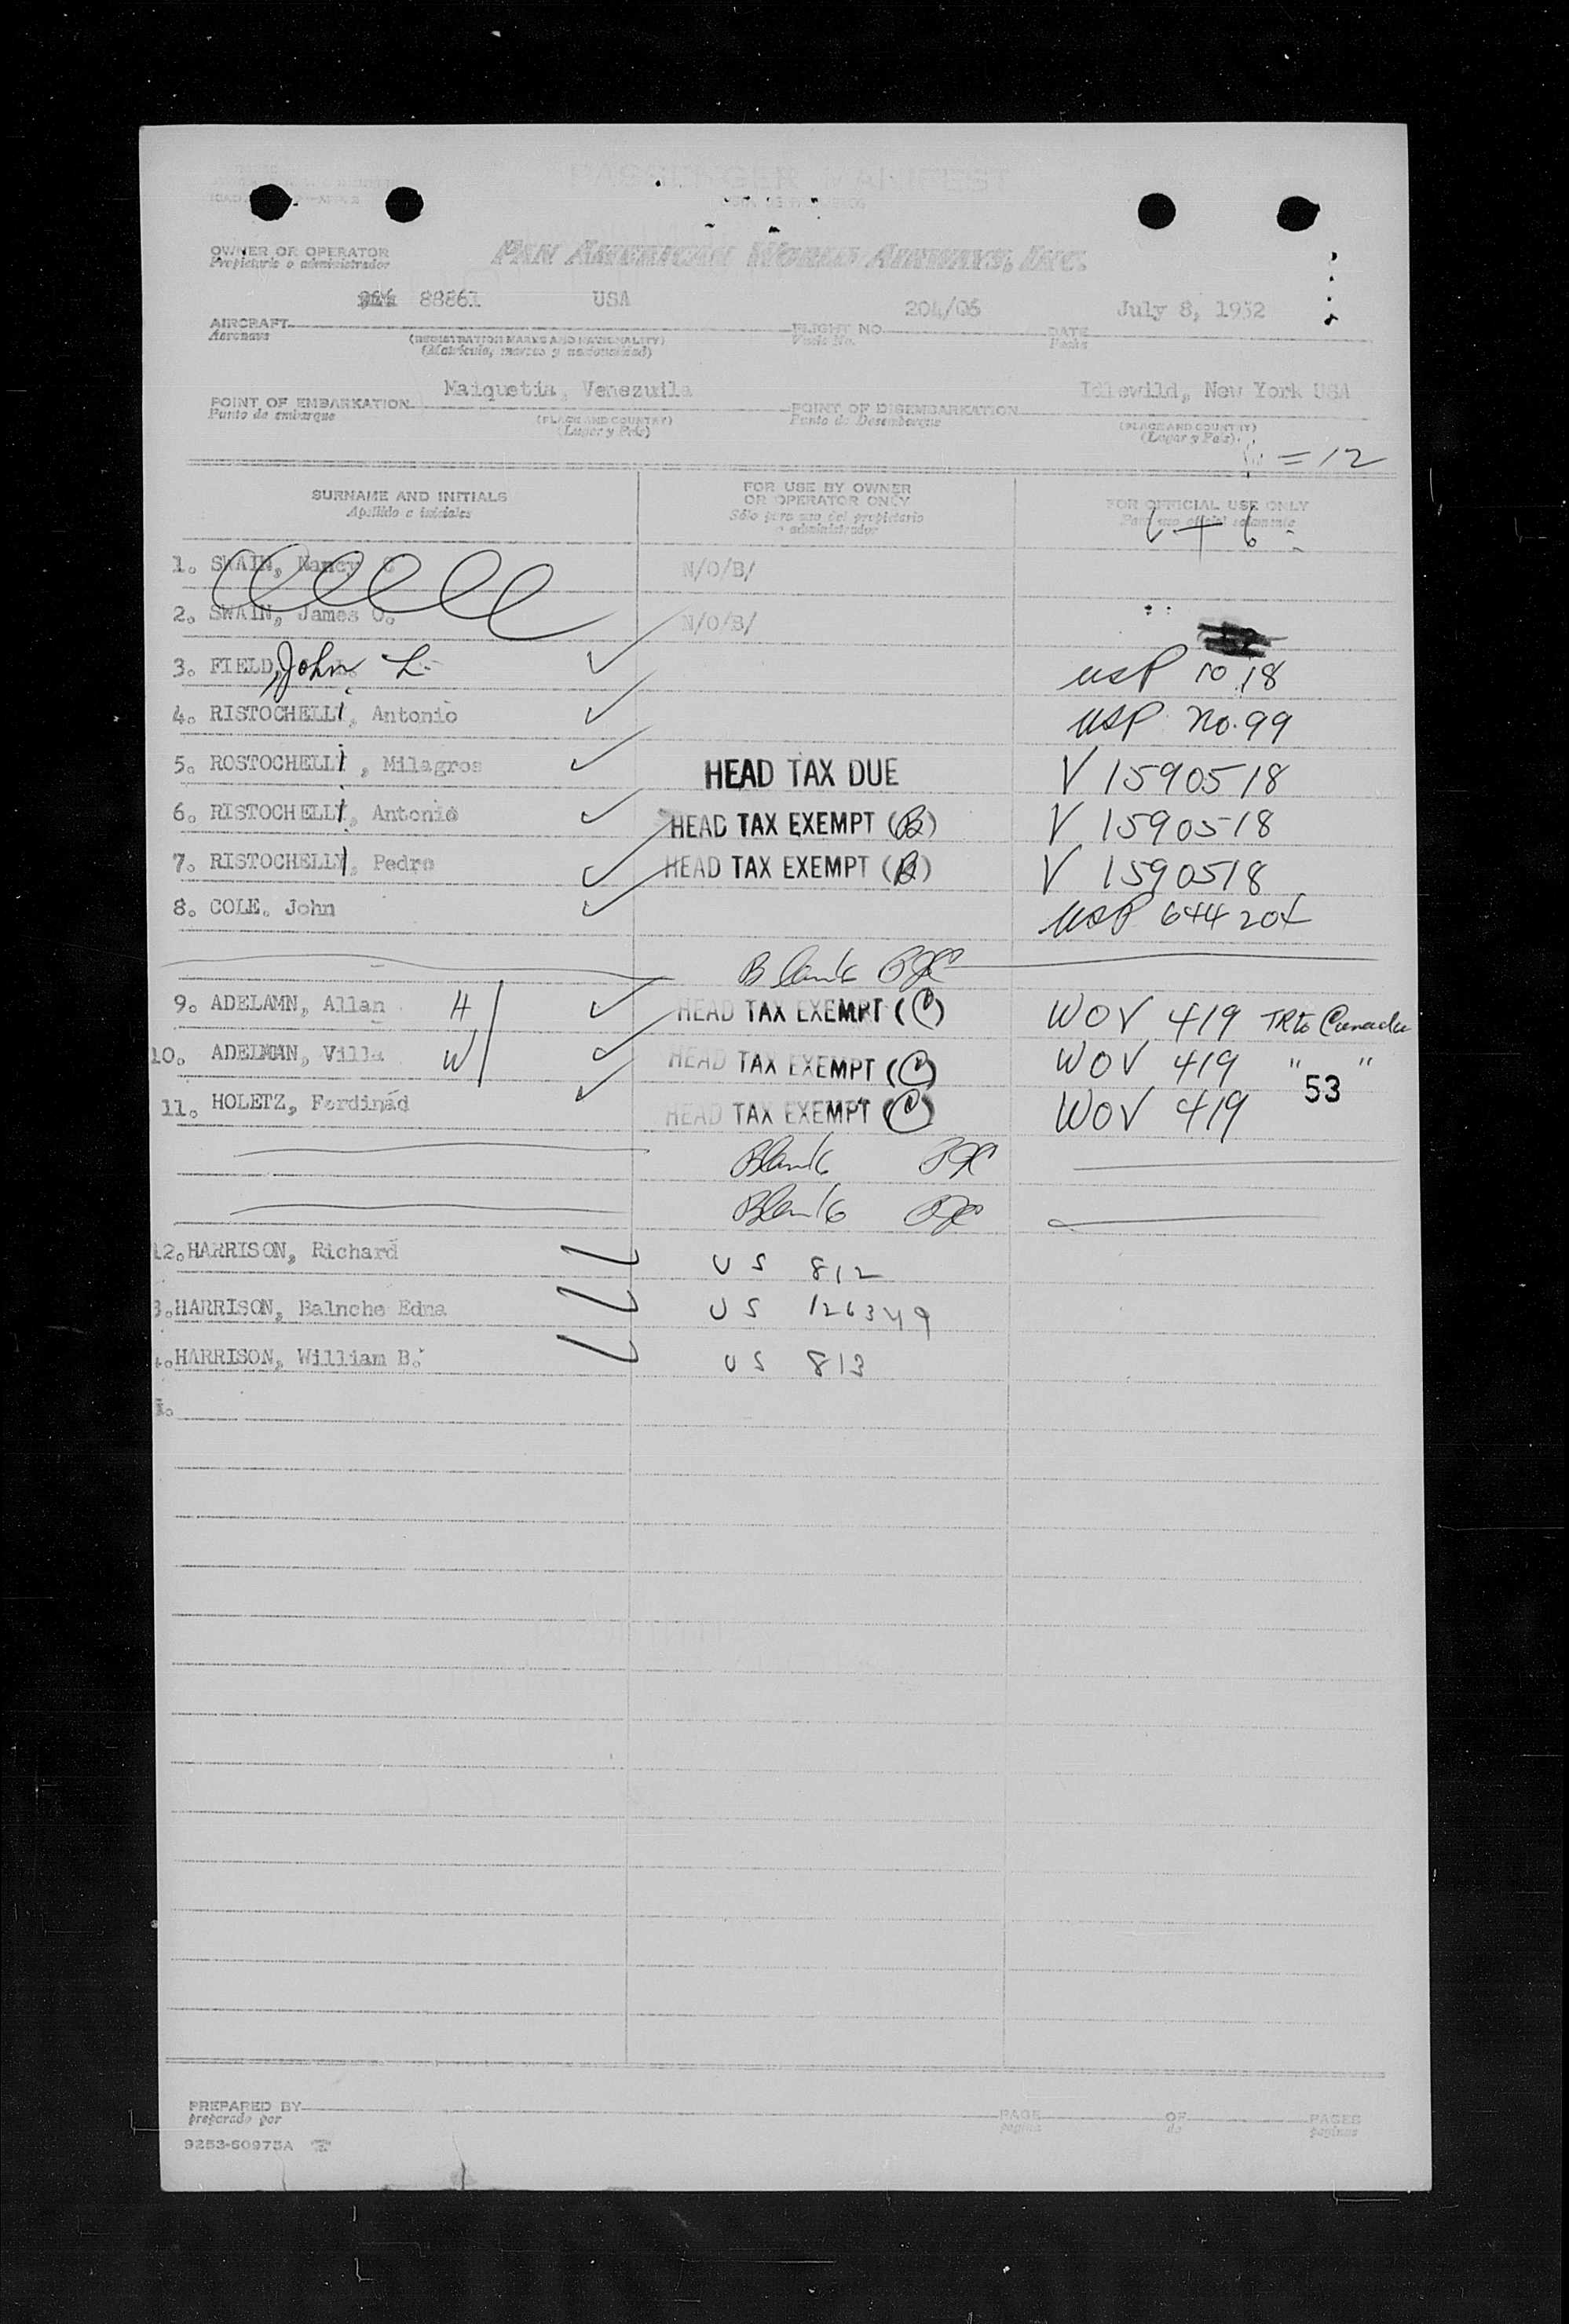 PASSENGER MANIFEST
OWNER OR OPERATOR
Propietario o administrador
PAN AMERICAN WORLD AIRWAYS, INC.
88861 USA 204/06 July 8, 1952
AIRCRAFT FLIGHT NO. DATE
Aeronave (REGISTRATION MARKS AND NATIONALITY) Vuelo No. Fecha
(Matrícula, marcas y nacionalidad)
Maiquetia, Venezuila Idlewild, New York USA
POINT OF EMBARKATION POINT OF DISEMBARKATION
Punto de embarque (PLACE AND COUNTRY) Punto de Desembarque (PLACE AND COUNTRY)
(Lugar y País) (Lugar y País)
= 12
SURNAME AND INITIALS FOR USE BY OWNER OR OPERATOR ONLY FOR OFFICIAL USE ONLY
Apellido e iniciales Sólo para uso del propietario o administrador Para uso oficial solamente
6 + 6
1. SWAIN, Nancy C N/O/B/
2. SWAIN, James O. N/O/B/
3. FIELD, John L. USP 1018
4. RISTOCHELLI, Antonio USP No. 99
5. ROSTOCHELLI, Milagros HEAD TAX DUE V 1590518
6. RISTOCHELLI, Antonio HEAD TAX EXEMPT (B) V 1590518
7. RISTOCHELLI, Pedro HEAD TAX EXEMPT (B) V 1590518
8. COLE. John USP 644204
Blank
9. ADELAMN, Allan H HEAD TAX EXEMPT (C) WOV 419 TR to Canada
10. ADELMAN, Villa W HEAD TAX EXEMPT (C) WOV 419 " "
53
11. HOLETZ, Ferdinad HEAD TAX EXEMPT (C) WOV 419
Blank
Blank
12. HARRISON, Richard US 812
3. HARRISON, Balnche Edna US 126349
4. HARRISON, William B. US 813
PREPARED BY PAGE OF PAGES
preparado por pagina de paginas
9253-60975A